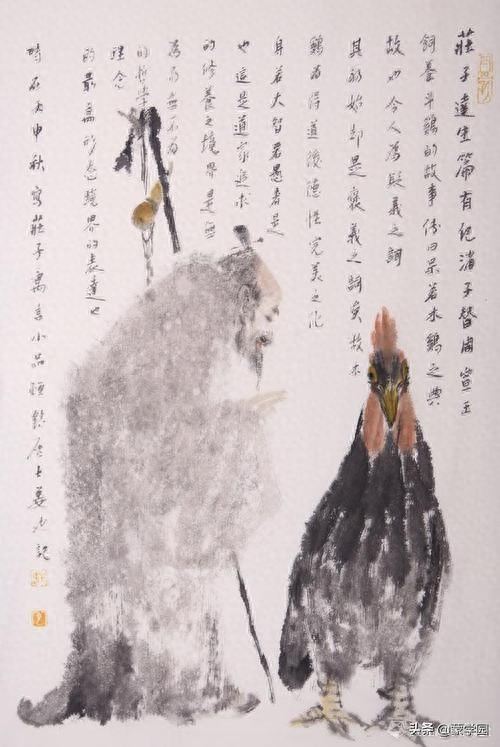 莊子達生篇有紀渻子替周宣王
飼養斗鷄的故事俗曰呆若木鷄之典
故也今人為貶義之詞
其原始却是褒義之詞矣故木
鷄為得道後德性完美之化
身若大智若愚者是
也這是道家追求
的修養之境界是無
為而無不為
的哲學
理念
的最高形态境界的表達也
時在丙申秋寫莊子寓言小品居士姜記
头条 @蒙学园